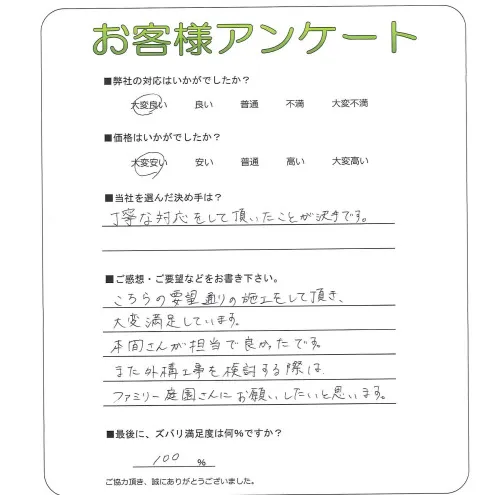 お客様アンケート
■弊社の対応はいかがでしたか?
大変良い 良い 普通 不満 大変不満
■価格はいかがでしたか?
大変安い 安い 普通 高い 大変高い
■当社を選んだ決め手は?
丁寧な対応をして頂いたことが決手です。
■ご感想・ご要望などをお書き下さい。
こちらの要望通りの施工をして頂き、
大変満足しています。
本間さんが担当で良かったです。
また外構工事を検討する際は
ファミリー庭園さんにお願いしたいと思います。
■最後に、ズバリ満足度は何%ですか?
100 %
ご協力頂き、誠にありがとうございました。